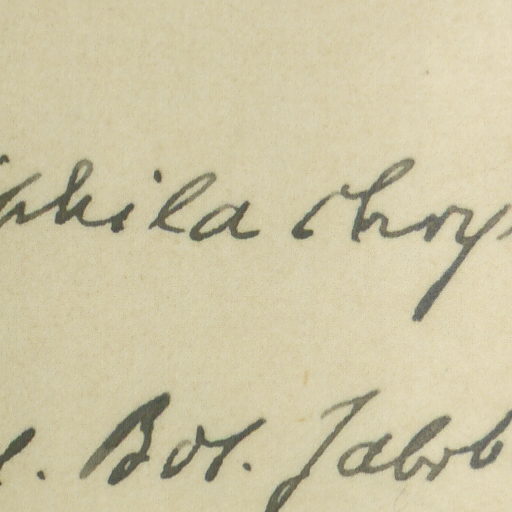 phila chry
l. Bot. Jahrb